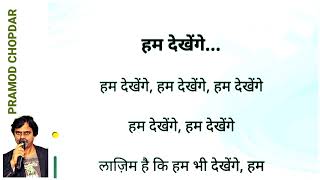 PRAMOD CHOPDAR
हम देखेंगे...
हम देखेंगे, हम देखेंगे, हम देखेंगे
हम देखेंगे, हम देखेंगे
लाज़िम है कि हम भी देखेंगे, हम